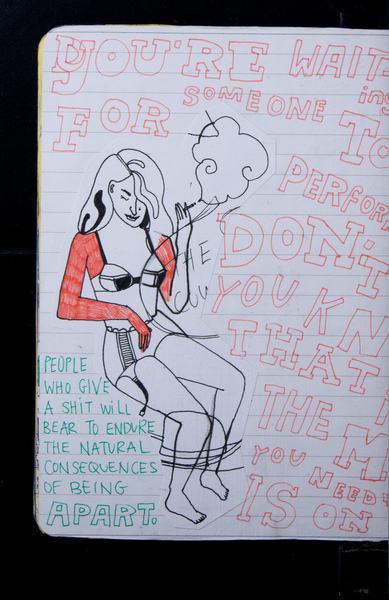 YOU'RE WAIT
ing
FOR SOMEONE TO
PERFORM
DON'T
YOU KN
THAT
THE M
YOU NEED
IS ON
PEOPLE
WHO GIVE
A SHIT WILL
BEAR TO ENDURE
THE NATURAL
CONSEQUENCES
OF BEING
APART.